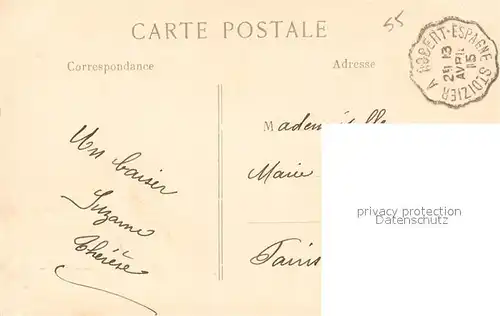 CARTE POSTALE
55
Correspondance
Adresse
ROBERT-ESPAGNE A ST DIZIER
2E 13
AVRIL
15
Mademoiselle
Marie
Un baiser
Suzanne
Thérèse
privacy protection
Datenschutz